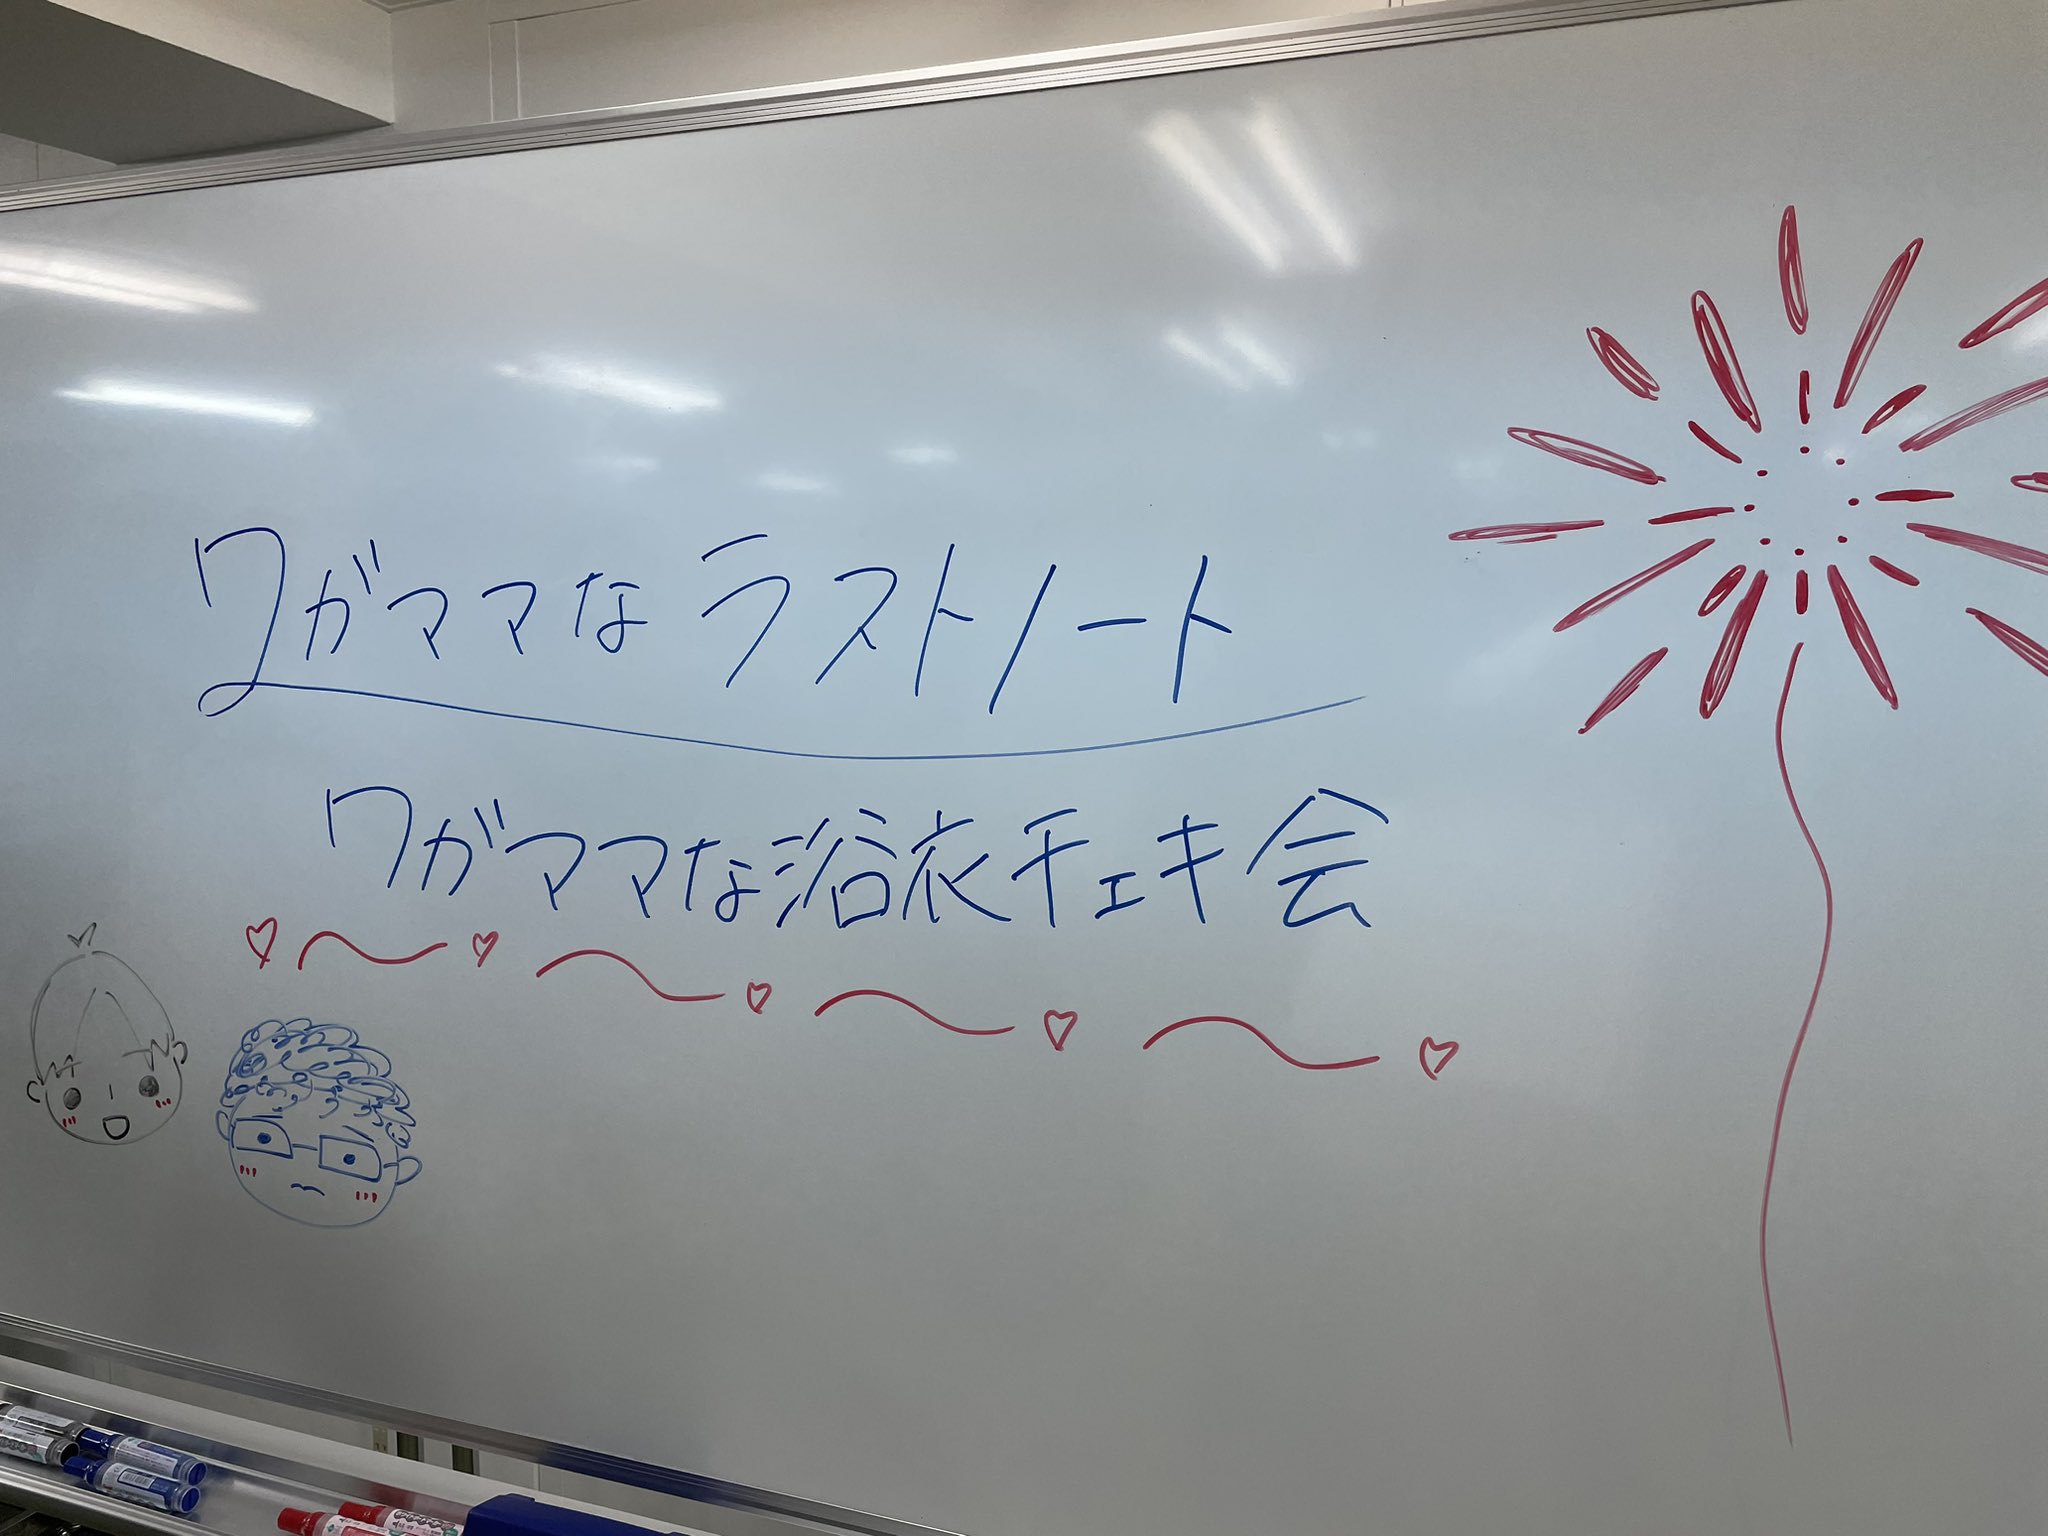 ワガママなラストノート
ワガママな浴衣チェキ会